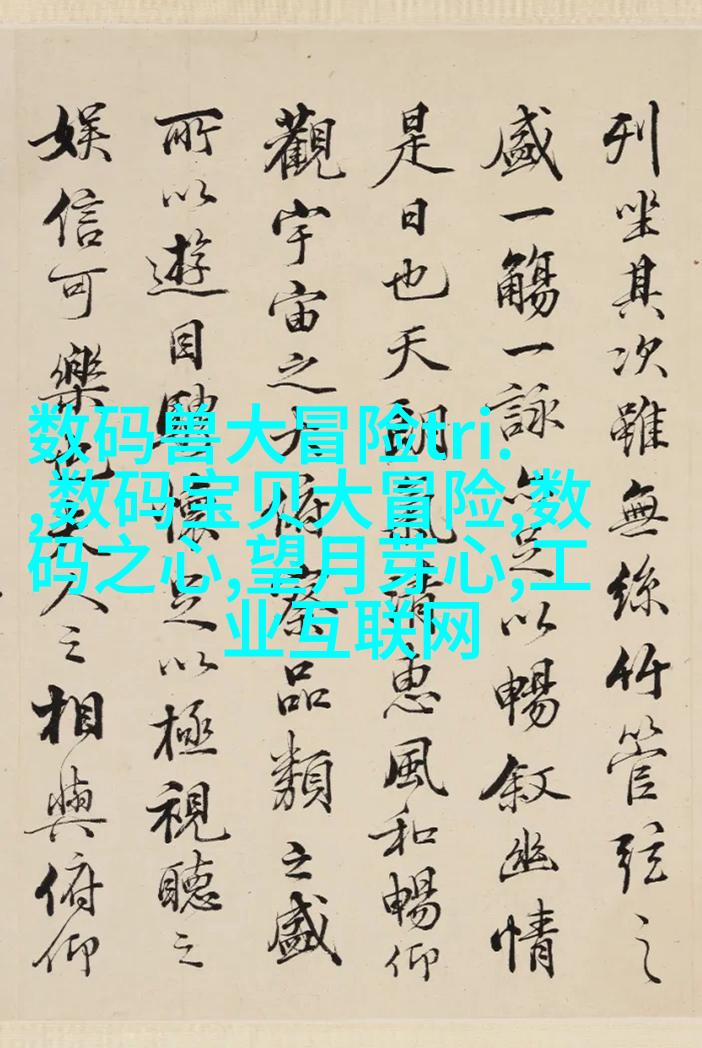 列坐其次雖無絲竹管弦之
盛一觴一詠亦足以暢叙幽情
是日也天朗氣清惠風和暢仰
觀宇宙之大俯察品類之盛
所以遊目騁懷足以極視聽之
娱信可樂也夫人之相與俯仰
数码兽大冒险tri.
,数码宝贝大冒险,数
码之心,望月芽心,工
业互联网